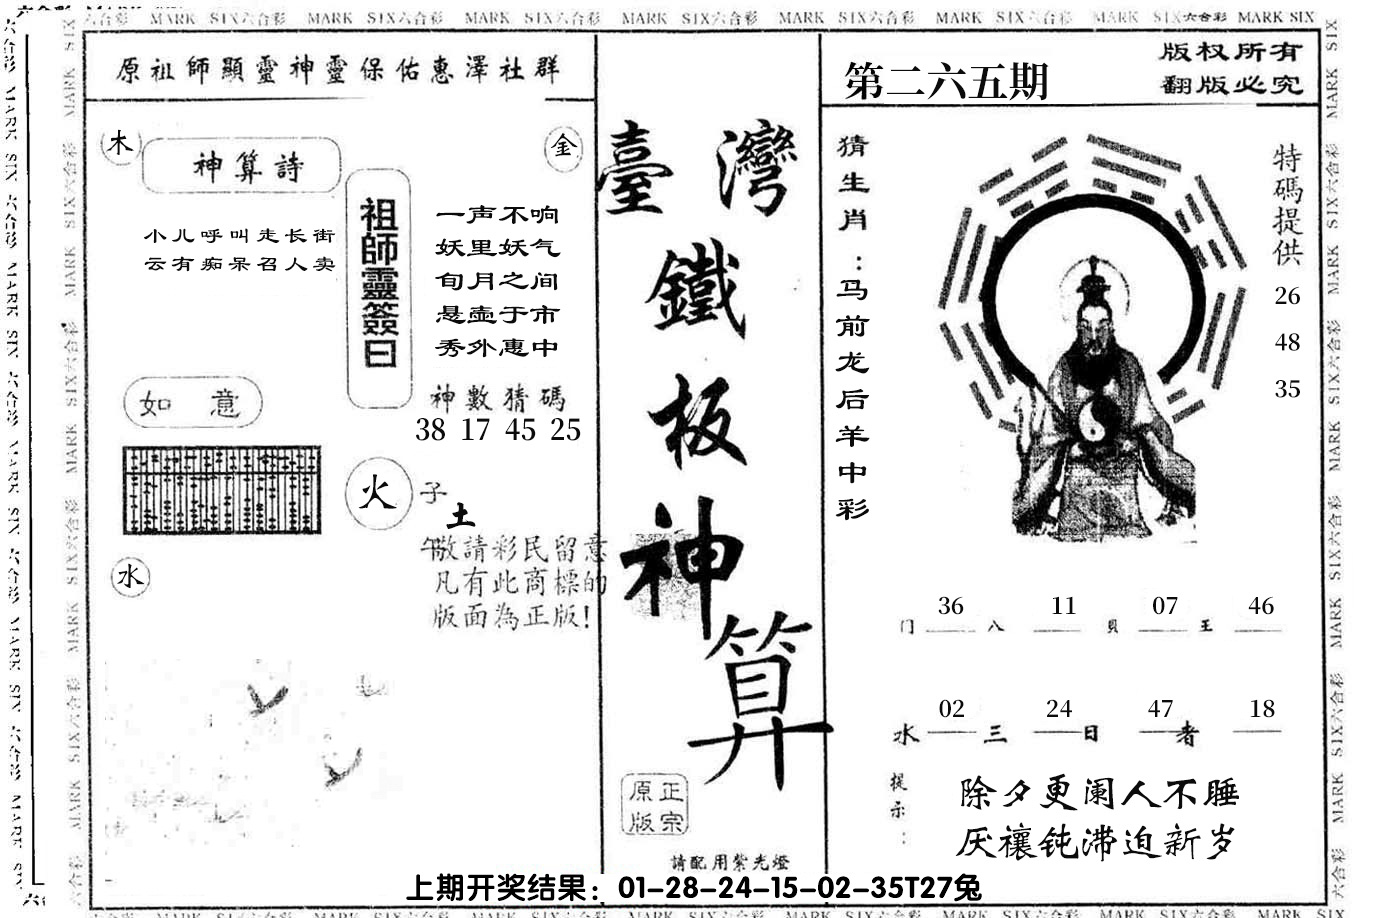 六合彩 MARK SIX六合彩 MARK SIX六合彩 MARK SIX六合彩 MARK SIX六合彩 MARK SIX六合彩 MARK SIX六合彩 MARK SIX六合彩 MARK SIX
原祖師顯靈神靈保佑惠澤社群
木
金
神算詩
小儿呼叫走长街
云有痴呆召人卖
祖師靈簽曰
一声不响
妖里妖气
旬月之间
悬壶于市
秀外惠中
神數猜碼
38 17 45 25
如意
火
子
土
午
水
敬請彩民留意
凡有此商標的
版面為正版!
臺灣
鐵
板
神
算
正宗
原版
請配用紫光燈
第二六五期
版权所有
翻版必究
猜生肖:马前龙后羊中彩
特碼提供
26
48
35
36 11 07 46
门 八 貝 王
02 24 47 18
水 三 日 者
提示:
除夕更阑人不睡
厌禳钝滞迫新岁
上期开奖结果：01-28-24-15-02-35T27兔